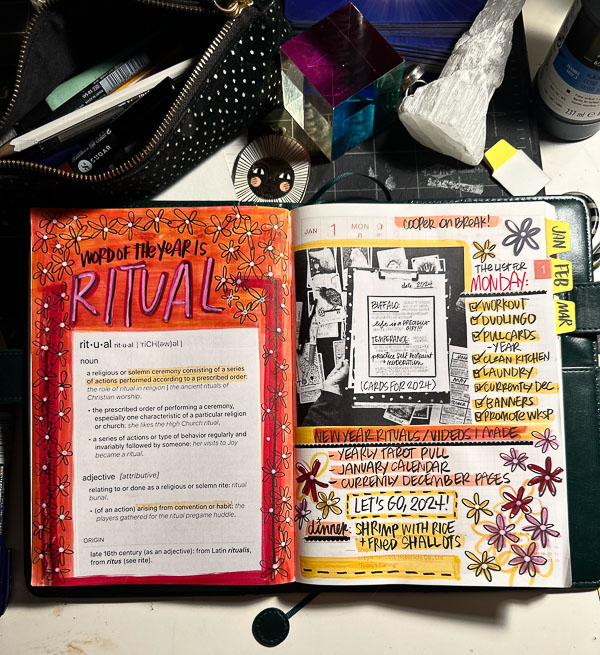 WORD OF THE YEAR IS
RITUAL
rit·u·al rit·u·al | ˈriCH(əw)əl |
noun
a religious or solemn ceremony consisting of a series
of actions performed according to a prescribed order:
the role of ritual in religion | the ancient rituals of
Christian worship.
• the prescribed order of performing a ceremony,
especially one characteristic of a particular religion
or church: she likes the High Church ritual.
• a series of actions or type of behavior regularly and
invariably followed by someone: her visits to Joy
became a ritual.
adjective [attributive]
relating to or done as a religious or solemn rite: ritual
burial.
• (of an action) arising from convention or habit: the
players gathered for the ritual pregame huddle.
ORIGIN
late 16th century (as an adjective): from Latin ritualis,
from ritus (see rite).
JAN 1 MON
COOPER ON BREAK!
date 2024
BUFFALO:
life is a precious
gift!!!
TEMPERANCE:
practice self restraint
+ moderation.
(CARDS FOR 2024)
THE LIST FOR 1
MONDAY:
WORKOUT
DUOLINGO
PULL CARDS
-YEAR
CLEAN KITCHEN
LAUNDRY
CURRENTLY DEC.
BANNERS
PROMOTE WKSP
JAN
FEB
MAR
NEW YEAR RITUALS/VIDEOS I MADE
- YEARLY TAROT PULL
- JANUARY CALENDAR
- CURRENTLY DECEMBER PAGES
LET'S GO, 2024!
dinner: SHRIMP WITH RICE
+ FRIED SHALLOTS